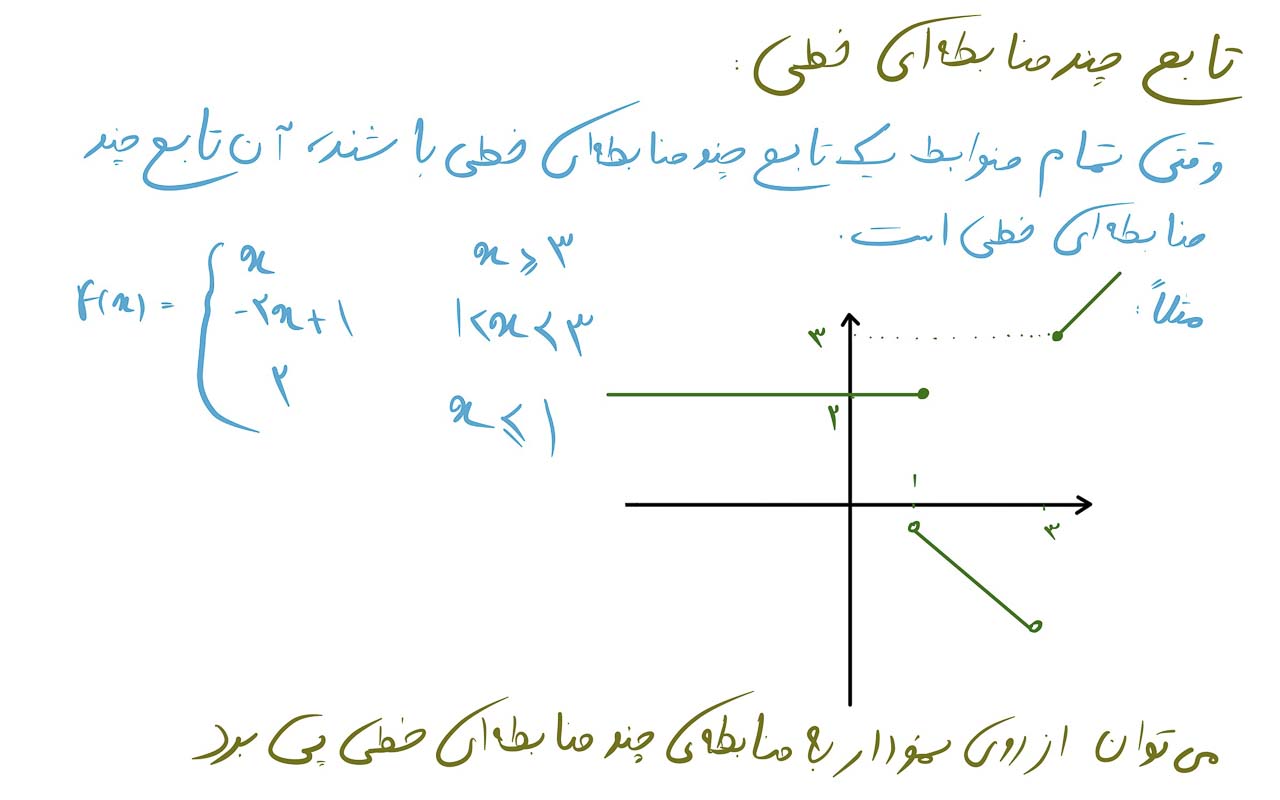 تابع چند ضابطه‌ای خطی :
وقتی تمام ضوابط یک تابع چند ضابطه‌ای خطی باشند، آن تابع چند
ضابطه‌ای خطی است.
مثلاً :
f(x) = {
x    x ≥ ۳
-۲x + ۱    ۱ < x < ۳
۲    x ≤ ۱
۳
۲
۱
۳
می‌توان از روی نمودار به ضابطه‌ی چند ضابطه‌ای خطی پی برد